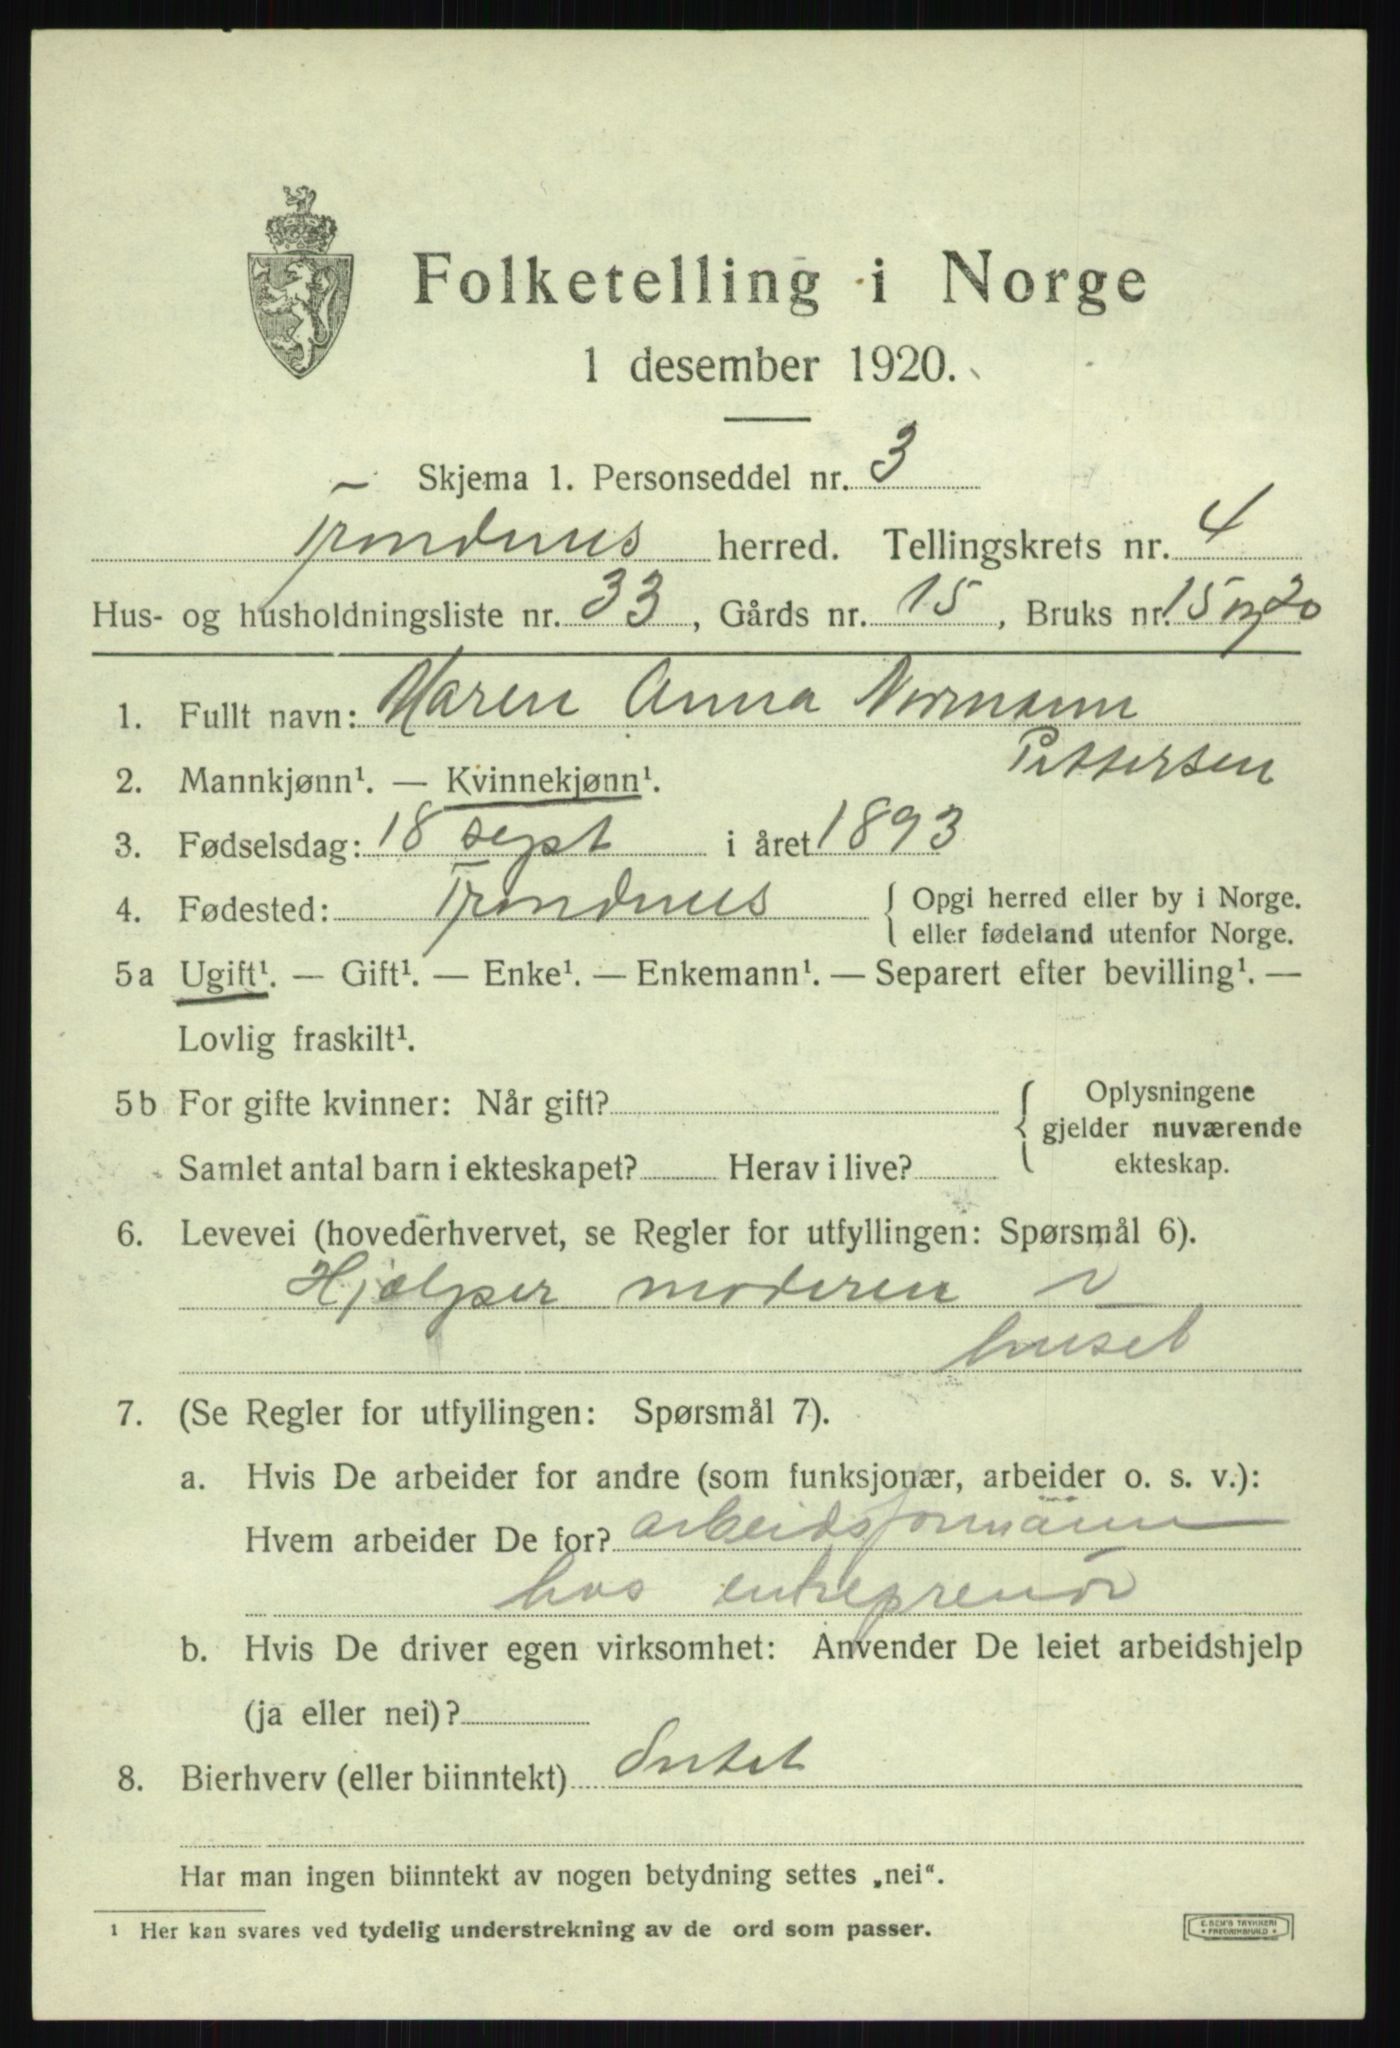 Folketelling i Norge
1 desember 1920.
Skjema 1. Personseddel nr. 3
Trondenes herred. Tellingskrets nr. 4
Hus- og husholdningsliste nr. 33, Gårds nr. 15, Bruks nr. 15 og 20
1. Fullt navn: Maren Anna Normann
Pettersen
2. Mannkjønn¹. — Kvinnekjønn¹.
3. Fødselsdag: 18 sept i året 1893
4. Fødested: Trondenes { Opgi herred eller by i Norge.
eller fødeland utenfor Norge.
5a Ugift¹. — Gift¹. — Enke¹. — Enkemann¹. — Separert efter bevilling¹. —
Lovlig fraskilt¹.
5b For gifte kvinner: Når gift? { Oplysningene
gjelder nuværende
Samlet antal barn i ekteskapet? Herav i live? ekteskap.
6. Levevei (hovederhvervet, se Regler for utfyllingen: Spørsmål 6).
Hjælper moderen i
huset
7. (Se Regler for utfyllingen: Spørsmål 7).
a. Hvis De arbeider for andre (som funksjonær, arbeider o. s. v.):
Hvem arbeider De for? arbeidsformann
hos entreprenør
b. Hvis De driver egen virksomhet: Anvender De leiet arbeidshjelp
(ja eller nei)?
8. Bierhverv (eller biinntekt) Intet
Har man ingen biinntekt av nogen betydning settes „nei“.
¹ Her kan svares ved tydelig understrekning av de ord som passer.
E. SEM'S TRYKKERI
FREDRIKSHALD